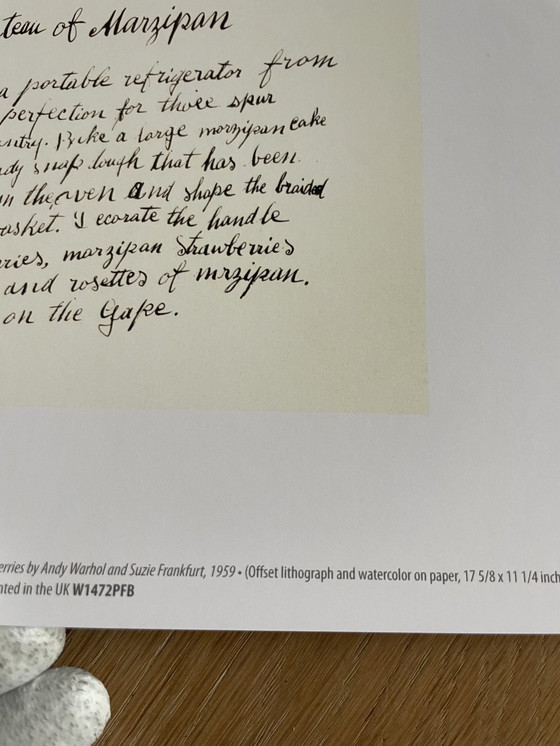 teau of Marzipan
a portable refrigerator from
perfection for those spur
untry. Bake a large morzipan cake
ndy snap dough that has been
in the oven and shape the braided
asket. Decorate the handle
rries, marzipan Strawberries
and rosettes of mrzipan.
on the Gake.
erries by Andy Warhol and Suzie Frankfurt, 1959 • (Offset lithograph and watercolor on paper, 17 5/8 x 11 1/4 inch
nted in the UK W1472PFB